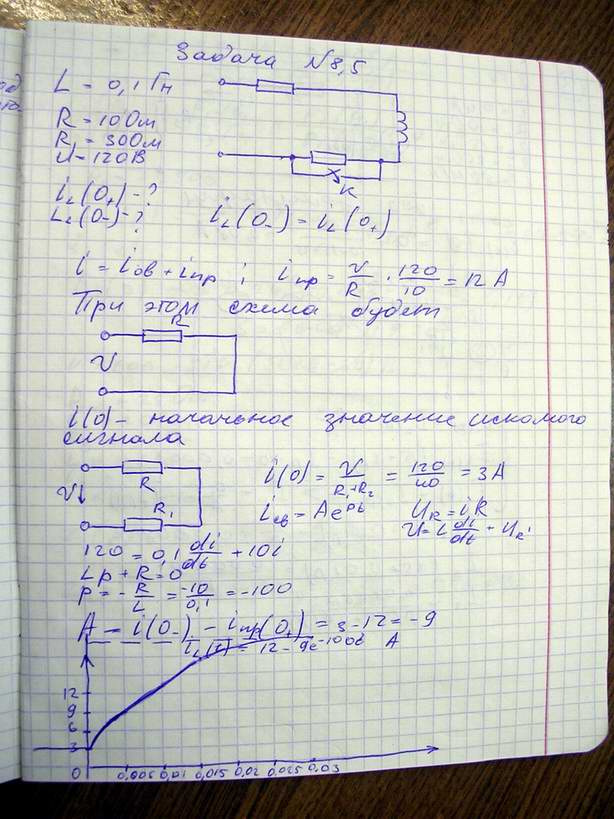 Задача №8,5
L = 0,1 Гн
R = 10 Ом
R₁ = 30 Ом
U = 120 В
K
i_L(0₊) - ?
L_L(0₋) - ?
i_L(0₋) = i_L(0₊)
i = i_св + i_пр ; i_пр = U/R · 120/10 = 12 А
При этом схема будет
R
U
i(0) - начальное значение искомого
сигнала
U↓ R R₁
i(0) = U/(R₁+R₂) = 120/40 = 3 А
i_св = Ae^pt
U_R = iR
U = L di/dt + U_R
120 = 0,1 di/dt + 10i
Lp + R = 0
p = -R/L = -10/0,1 = -100
A = i(0₋) - i_пр(0₊) = 3 - 12 = -9
i_L(t) = 12 - 9e^-100t А
12
9
6
3
0 0,005 0,01 0,015 0,02 0,025 0,03